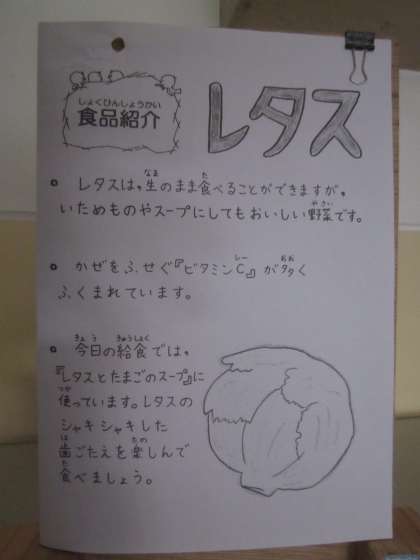 しょくひんしょうかい
食品紹介
レタス
。レタスは,生のまま食べることができますが,
いためものやスープにしてもおいしい野菜です。
。かぜをふせぐ『ビタミンC』が多く
ふくまれています。
。今日の給食では,
『レタスとたまごのスープ』に
使っています。レタスの
シャキシャキした
歯ごたえを楽しんで
食べましょう。